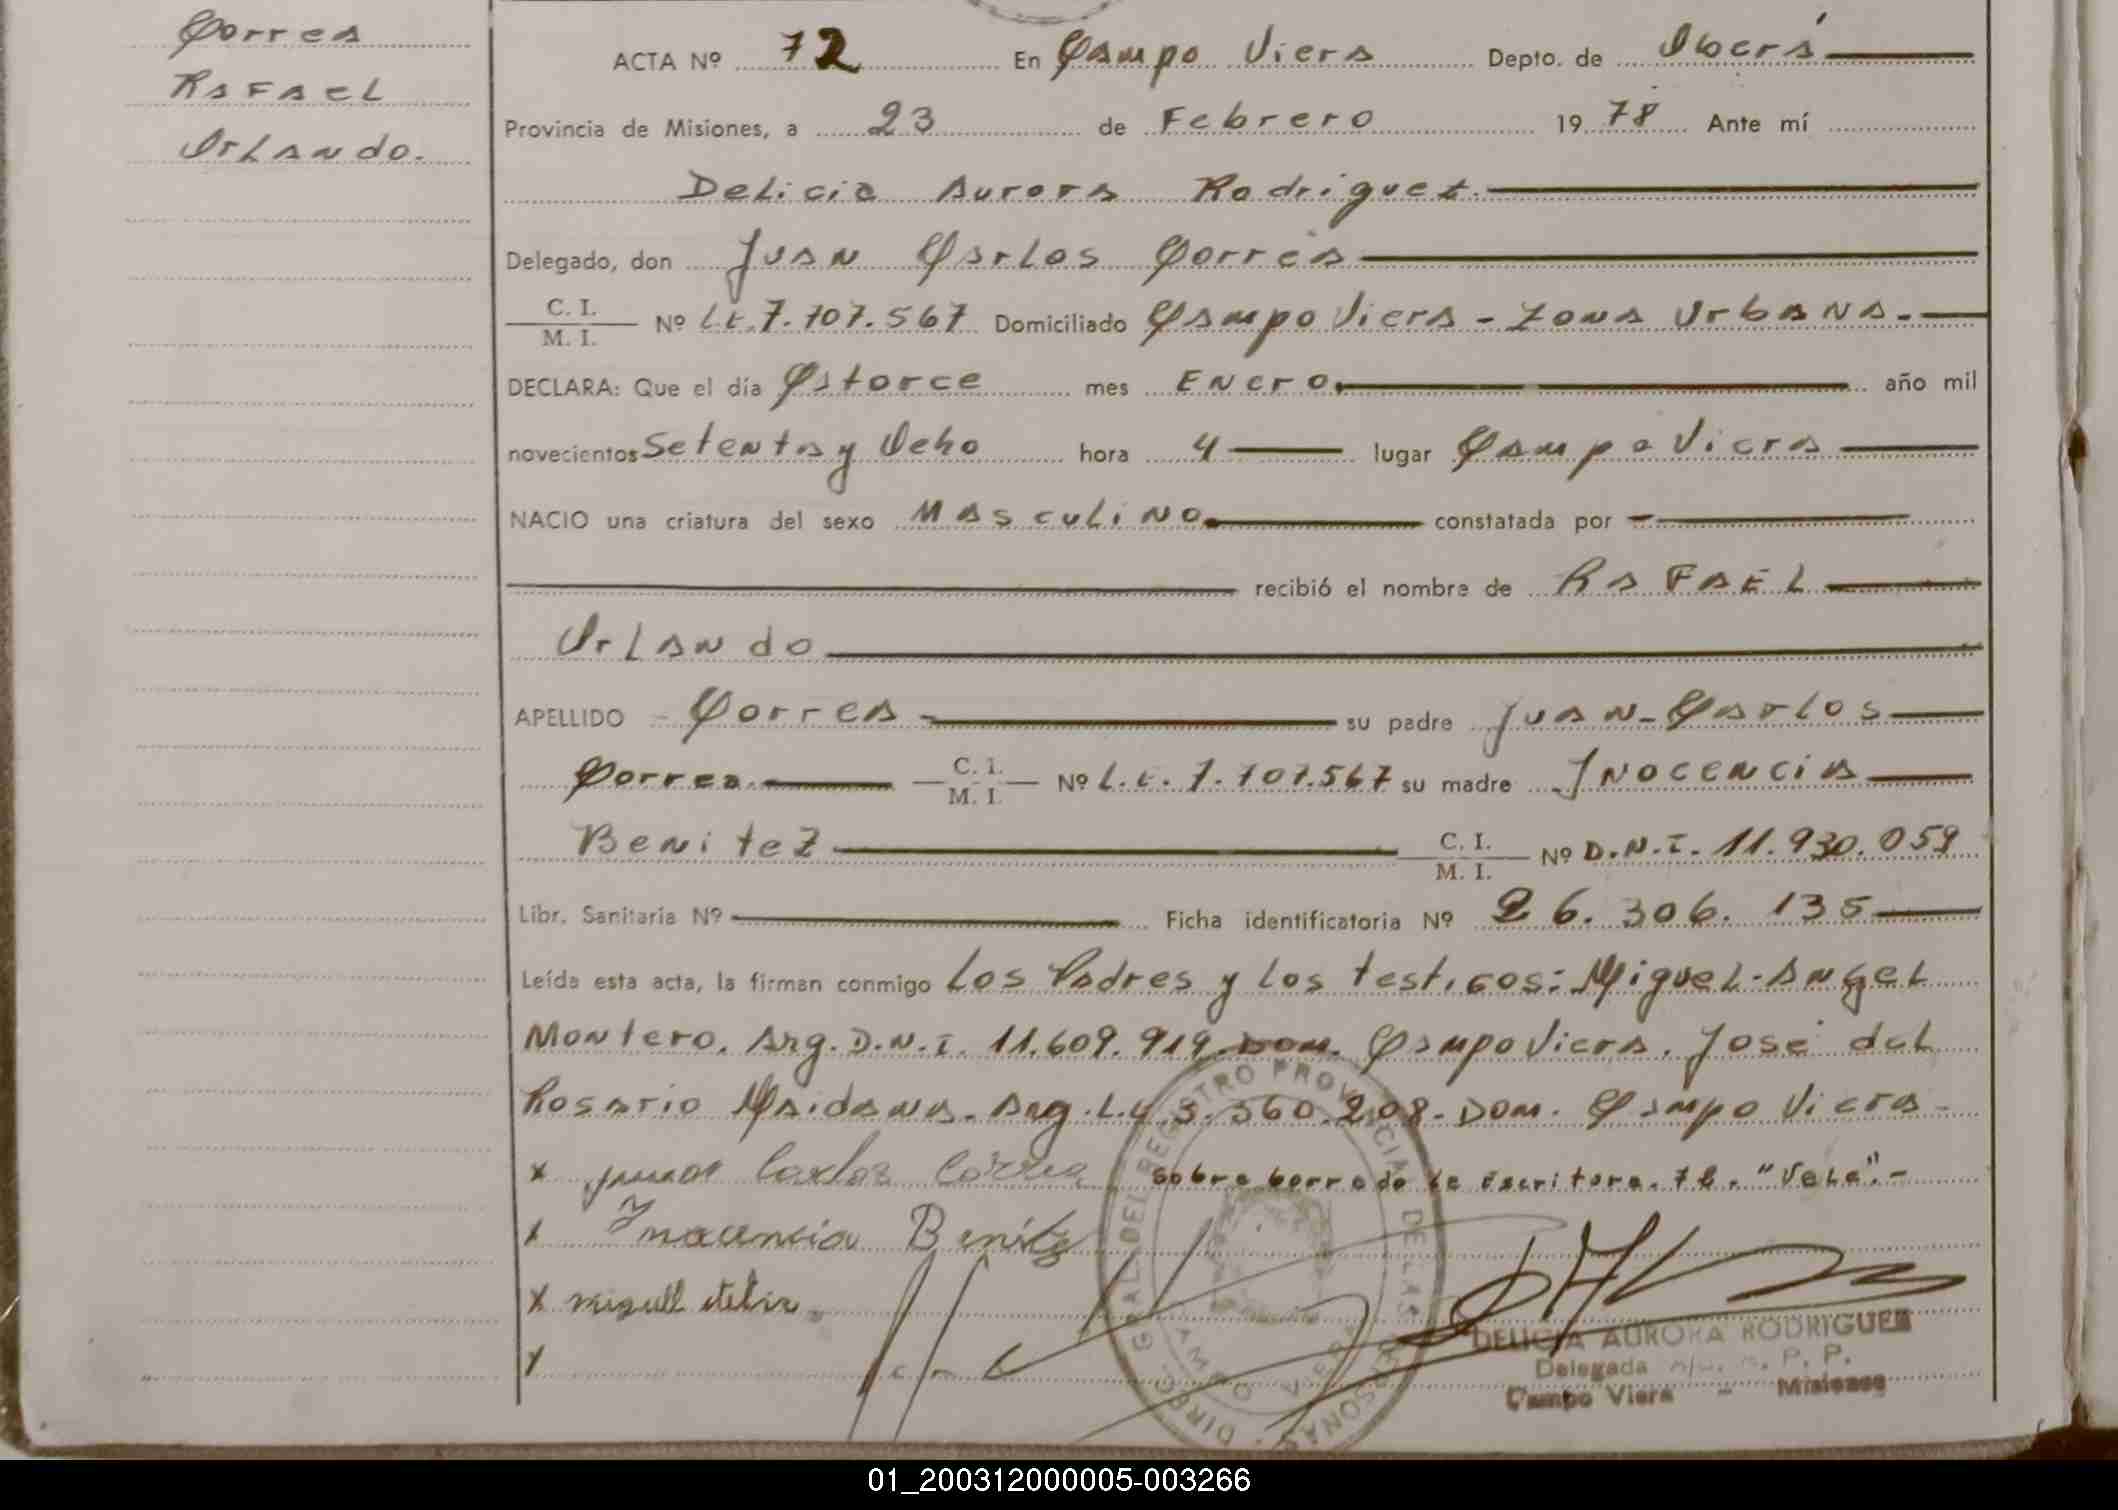 Correa
Rafael
Orlando.
ACTA Nº 72 En Campo Viera Depto. de Oberá
Provincia de Misiones, a 23 de Febrero 1978 Ante mí
Delicia Aurora Rodriguez.
Delegado, don Juan Carlos Correa
C. I. / M. I. Nº L.E. 7.107.567 Domiciliado Campo Viera - Zona Urbana.-
DECLARA: Que el día Catorce mes Enero. año mil
novecientos Setenta y Ocho hora 4 lugar Campo Viera
NACIO una criatura del sexo Masculino. constatada por
recibió el nombre de RAFAEL
Orlando
APELLIDO - Correa - su padre Juan - Carlos
Correa. C. I. / M. I. Nº L.E. 7.107.567 su madre Inocencia
Benitez C. I. / M. I. Nº D.N.I. 11.930.059
Libr. Sanitaria Nº Ficha identificatoria Nº 26.306.135
Leída esta acta, la firman conmigo Los Padres y los testigos: Miguel - Angel
Montero. Arg. D.N.I. 11.609.919. Dom. Campo Viera. José del
Rosario Maidana. Arg. L.E. 3.360.208. Dom. Campo Viera -
x Juan Carlos Correa Sobre borrado de Escritura. 72. "Vale".-
x Inocencia Benitez
x
x
DIREC. GRAL. DEL REGISTRO PROVINCIAL DE LAS PERSONAS
CAMPO VIERA
DELICIA AURORA RODRIGUEZ
Delegada R. P. P.
Campo Viera - Misiones
01_200312000005-003266